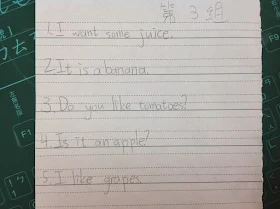 第3組
1. I want some juice.
2. It is a banana.
3. Do you like tomatoes?
4. Is it an apple?
5. I like grapes.
F1